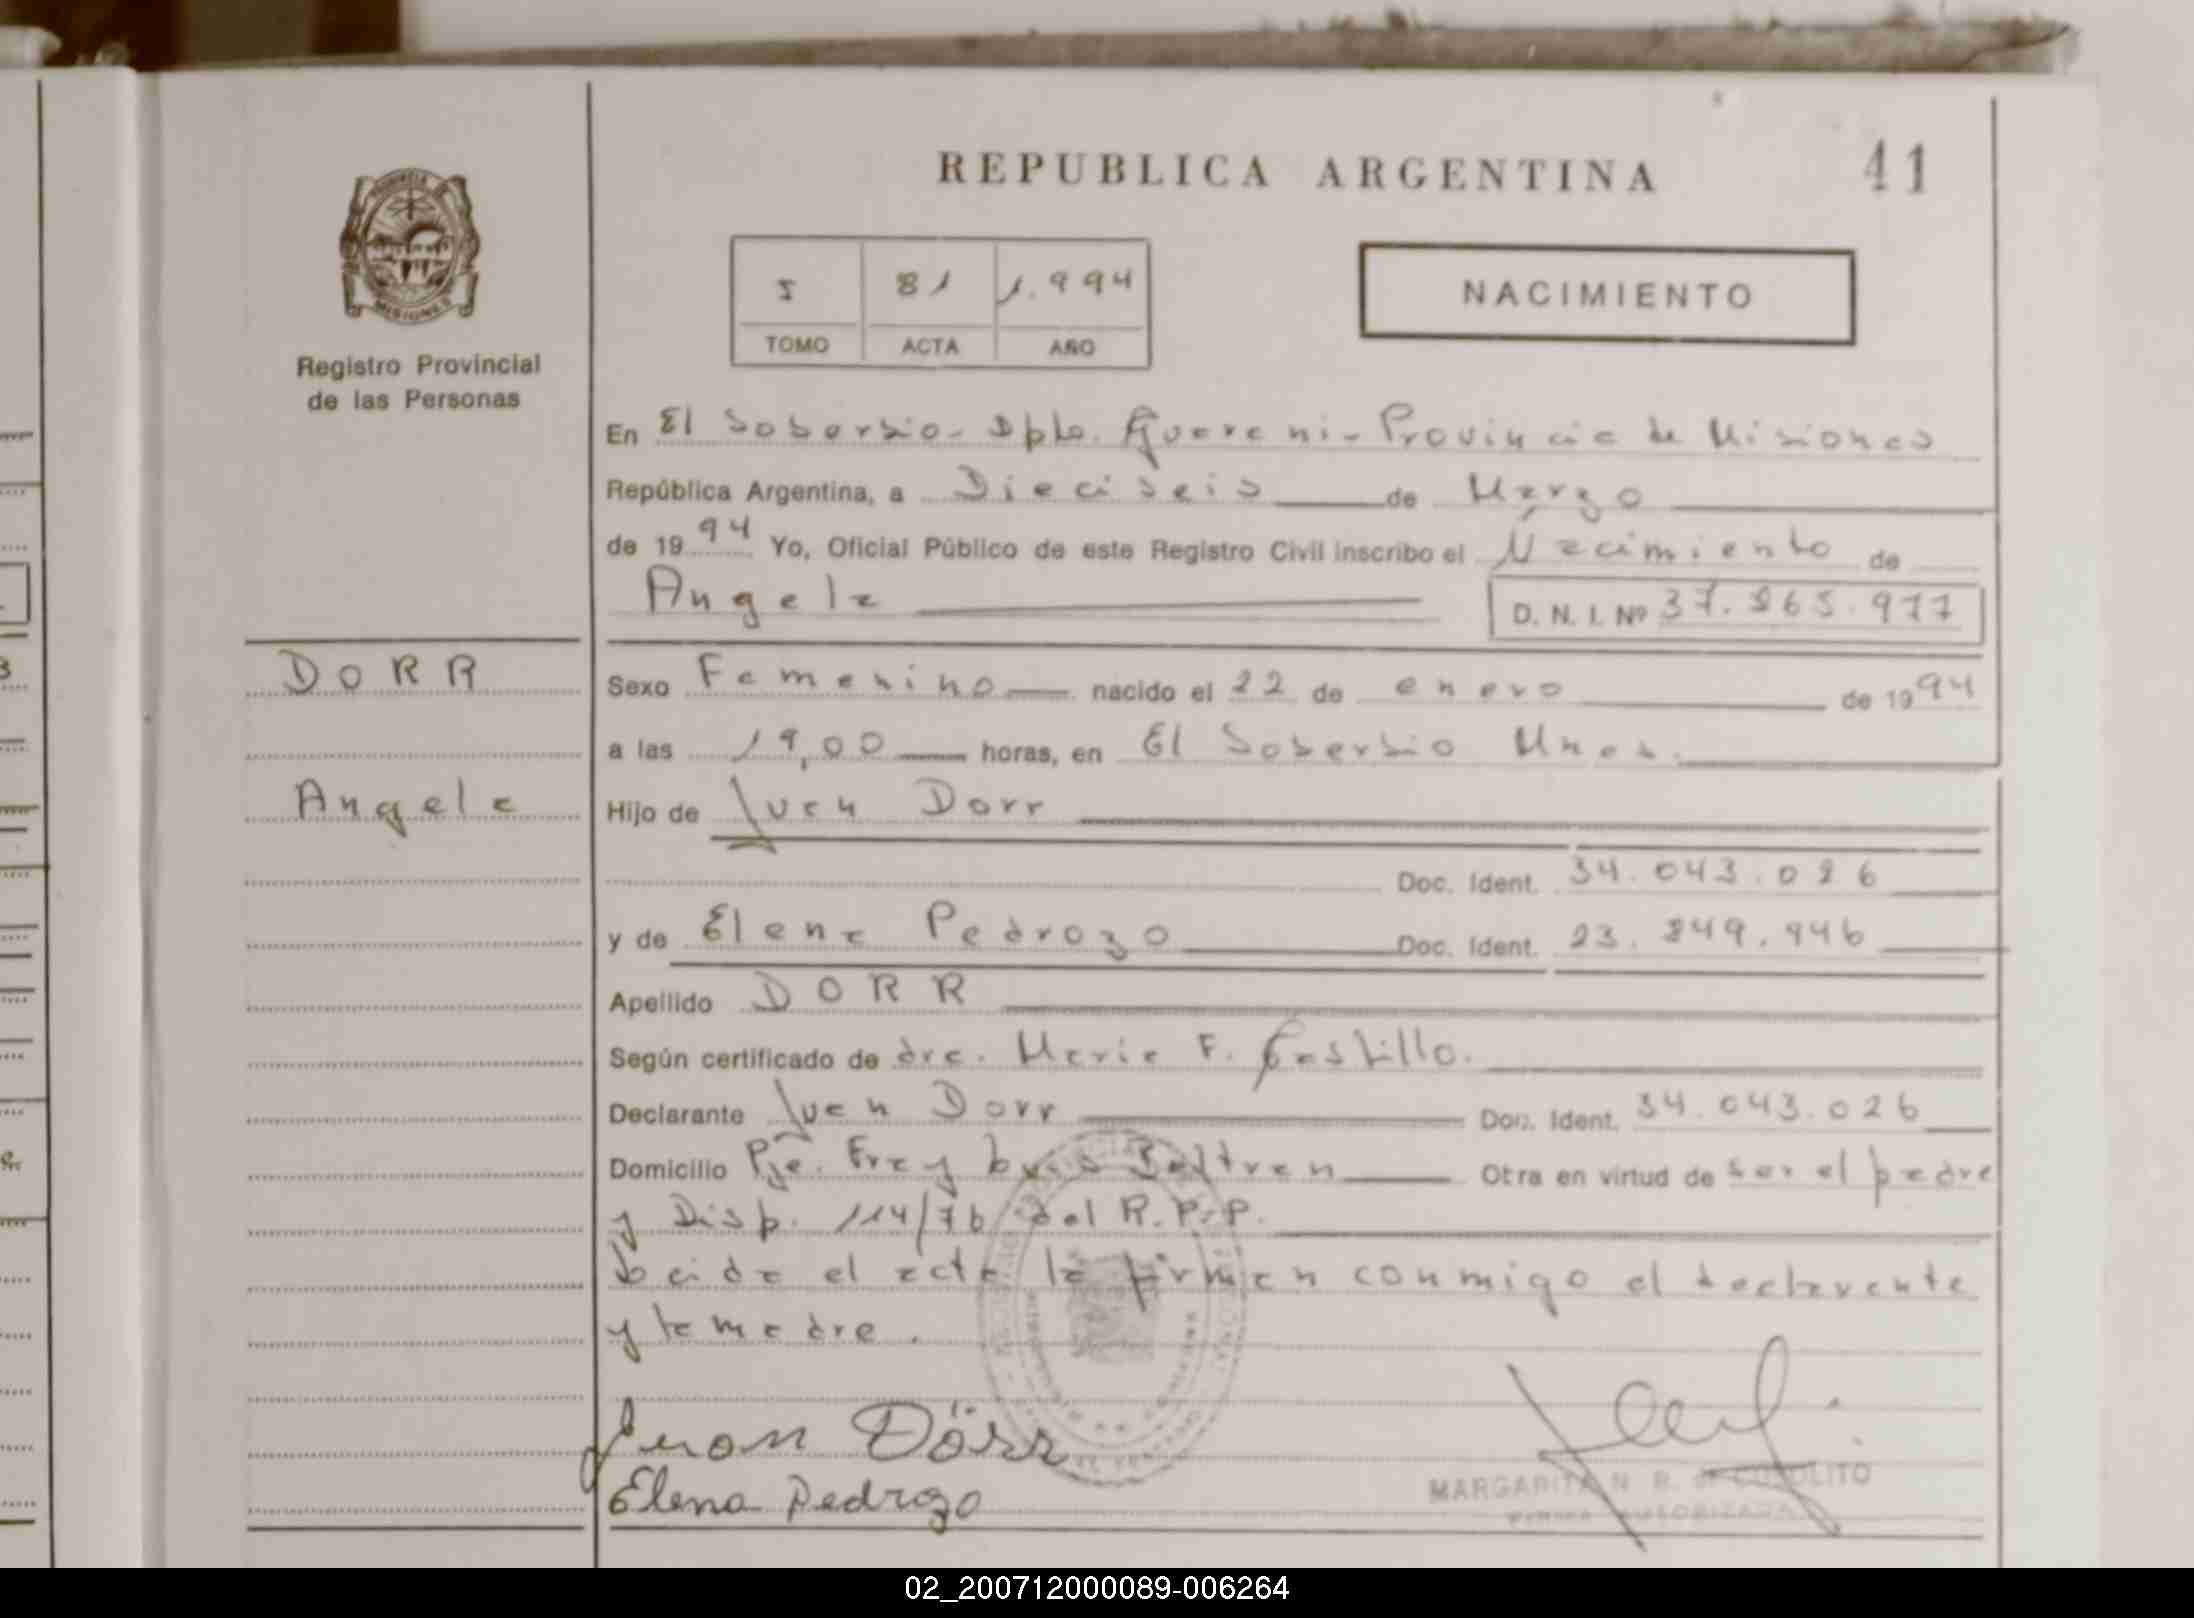 REPUBLICA ARGENTINA
41
PROVINCIA DE
MISIONES
Registro Provincial
de las Personas
I 81 1.994
TOMO ACTA AÑO
NACIMIENTO
En El Soberbio - Dpto. Guarani - Provincia de Misiones
República Argentina, a Dieciseis de Marzo
de 1994 Yo, Oficial Público de este Registro Civil inscribo el Nacimiento de
Angela
D. N. I. Nº 37. .977
DORR
Sexo Femenino nacido el 22 de enero de 1994
a las 19,00 horas, en El Soberbio Mnes.
Angela
Hijo de Juan Dorr
Doc. Ident. 34.043.026
y de Elena Pedrozo Doc. Ident. 23.
Apellido DORR
Según certificado de dra. Maria F. Castillo.
Declarante Juan Dorr Doc. Ident. 34.043.026
Domicilio Pje. Fray Luis Beltran Otra en virtud de ser el padre
y Disp. 114/76 del R.P.P.
Leida el acta la firman conmigo el declarante
y la madre.
Juan Dörr
Elena Pedrozo
MARGARITA N. R.
FIRMA AUTORIZADA
02_200712000089-006264